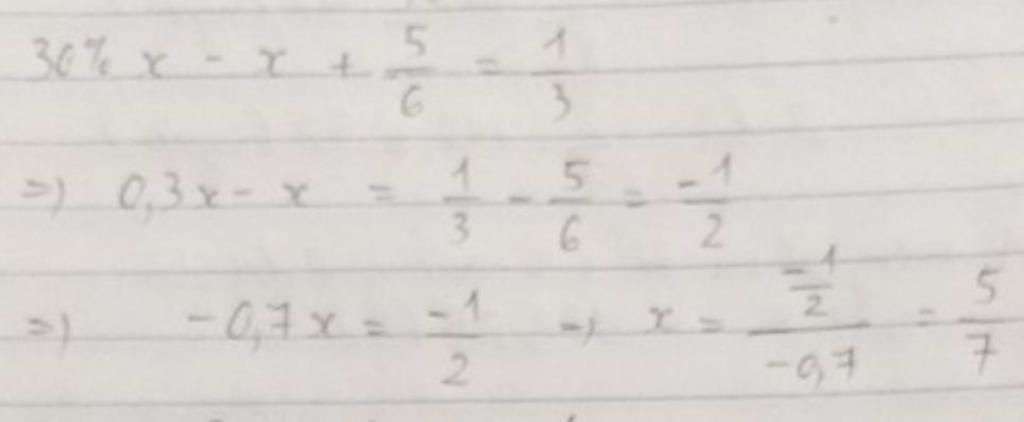 30% x - x + 5/6 = 1/3
=) 0,3x - x = 1/3 - 5/6 = -1/2
=) -0,7x = -1/2 =) x = (-1/2)/(-0,7) = 5/7